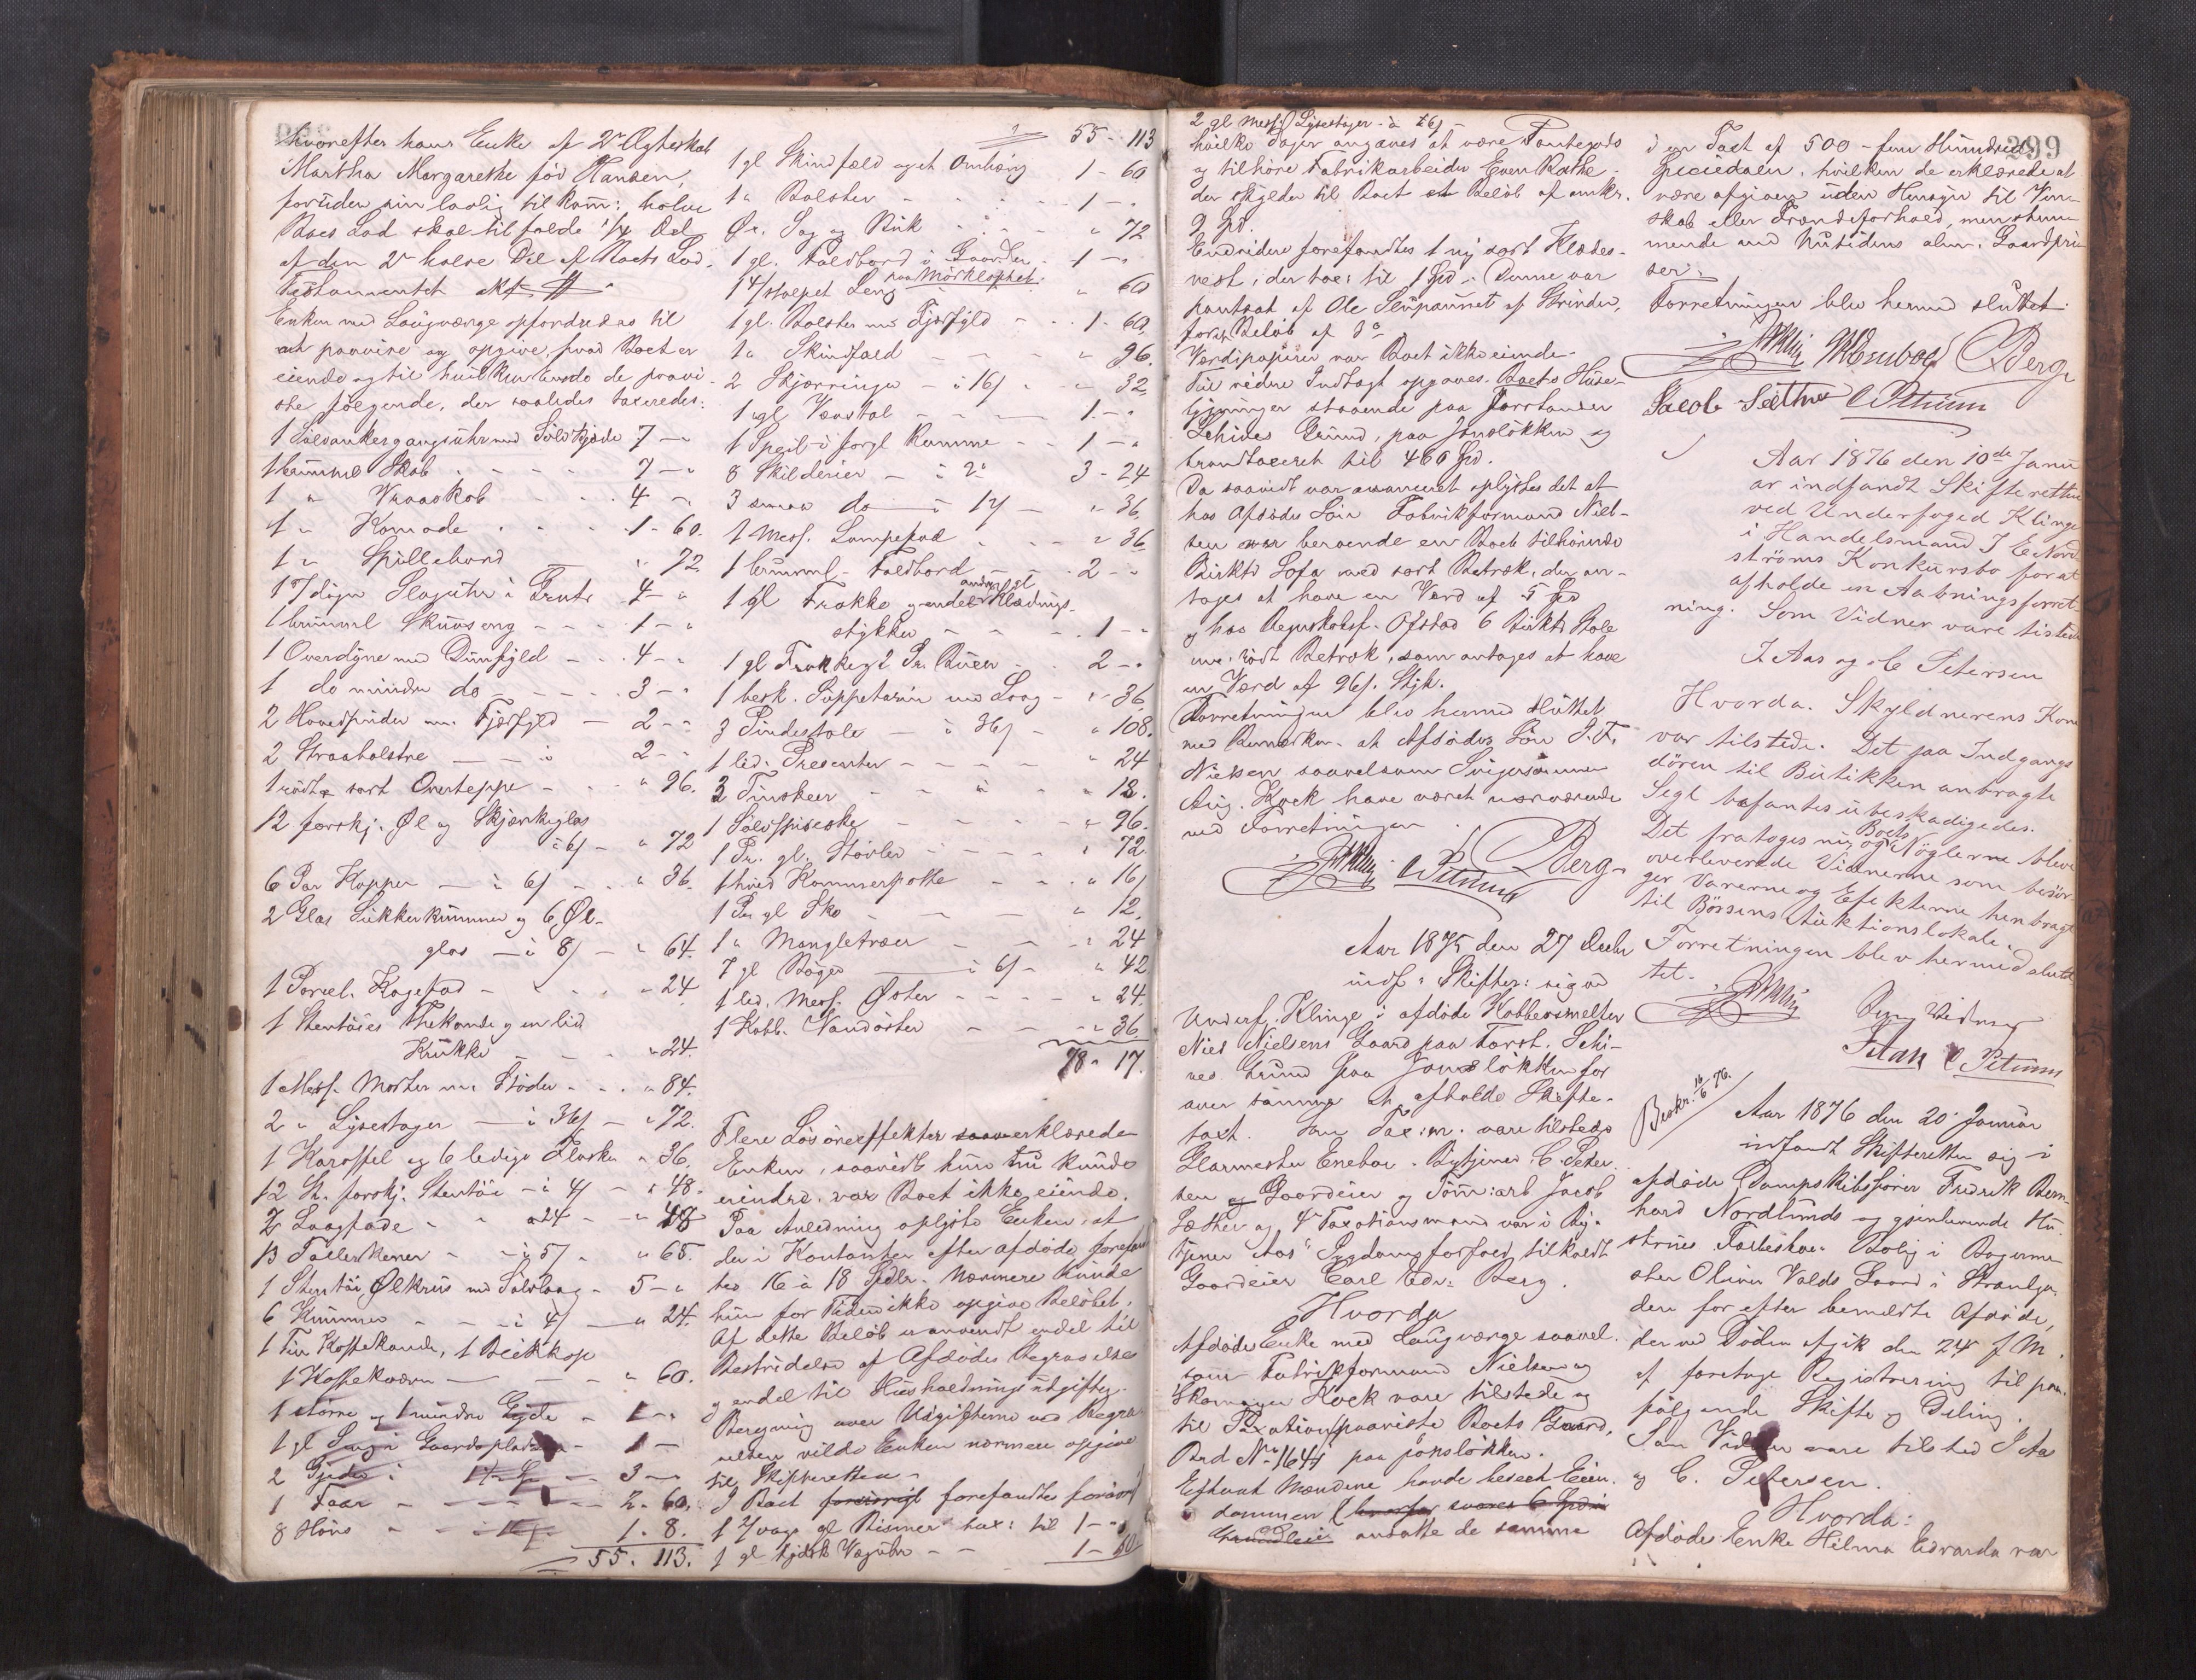 hvorefter hans Enke af 2det Ægteskab
Martha Margarethe fød Hansen,
foruden sin lovlig tilkom: halve
Boes Lod skal tilfalde 1/4 Del
af den 2den halve Del af Boets Lod.
Testamentet
Enken med Laugværge opfordredes til
at paavise og opgive, hvad Boet er
eiende og til hvilken Ende de paavi-
ste følgende, der saaledes taxeredes:
1 Sølvankergangsuhr med Sølvkjæde 7 - "
1 brunmal Skab 7 - "
1 " Vraaskab 4 - "
1 " Komode 1 - 60.
1 " Spillebord " 72
1 7 døgn Slaguhr i Træ 4 - "
1 brunmal Skuvseng 1 - "
1 Overdyne med Dunfyld 4 - "
1 do mindre do 3 - "
2 Hovedpuder m. Fjærfyld 2 - "
2 Straabolstre 2 - "
1 rødt og sort Overteppe " 96.
12 forskj. Øl og Skjænkeglas
à 6/ " 72
6 Par Kopper à 6/ " 36.
2 Glas Sukkerkummer og 6 Øl-
glas à 8/ " 64.
1 Porcel. Kagefad " 24
1 Stentøies Thekande og en lid
Krukke " 24.
1 Mess. Morter m. Støder " 84.
2 " Lysestager à 36/ " 72.
1 Karaffel og 6 ledige Flasker " 36.
12 St. forskj. Stentøi à 4/ " 48.
2 Laagfade a 24 " 48
13 Tallerkener à 5/ " 65.
1 Stentøi Ølkrus med Sølvlaag 5 - "
6 Kummer à 4/ " 24.
1 Tin Kaffekande, 1 Blikkop
1 Kaffekværn " 60.
1 større og 1 mindre Gryde 1 - "
1 gl Seng i Gaardspladsen 1 -
2 Gjeder 3 -
1 Faar 2 - 60.
8 Høns 1. 8.
55. 113.
55 - 113
1 gl Skindfæld og et Omhæng 1 - 60
1 " Bolster 1 - "
Øx. Sag og Buk " 72
1 gl. Foldbord i Gaarden 1 - "
1 4/stolpet Seng paa Mørkloftet " 60
1 gl. Bolster m. Fjærfyld 1 - 60.
1 " Skindfæld " 96.
2 Skjærringer à 16/ " 32
1 gl Vævstol 1 - "
1 Speil i forgl Ramme 1 - "
8 Skilderier à 2 3 - 24
3 smaa do à 12/ " 36
1 Mess. Lampefad " 36
1 brunmal. Foldbord 2 - "
1 gl Frakke og endel andre gl Klædnings-
stykker 1 - "
1 gl Frakke og 2 Pr. Buxer 2 - "
1 besk. Suppeterin med Laag " 36
3 Pindestole à 36/ " 108.
1 lid. Presenter " 24
3 Tinskeer " 18.
1 Sølvspiseske " 96.
1 Pr. gl. Støvler " 72.
1 hvid Kammerpotte " 16/
1 Par gl Sko " 12.
1 " Mangletræer " 24
7 gl Bøger à 6/ " 42
1 lid. Mess. Øster " 24.
1 Kobb. Vandøster " 36
78 - 17.
Flere Løsøreeffekter erklærede
Enken, saavidt hun nu kunde
erindre, var Boet ikke eiende.
Paa Anledning oplyste Enken, at
der i Kontanter efter afdøde forefand-
tes 16 à 18 Spdlr. Nærmere kunde
hun for Tiden ikke opgive Beløbet;
Af dette Beløb er anvendt endel til
Bestridelse af Afdødes Begravelse
og endel til Husholdningsudgifter.
Beregning over Udgifterne ved Begra-
velsen vilde Enken nærmere opgive
til Skifteretten.
I Boet forefandtes forøvrigt
1 2/vogs gl Bismer tax: til 1 - "
1 gl tydsk Væguhr 1 - 60
2 gl mess Lysestager - à 26/ -
hvilke Sager angaves at være Pantegods
og tilhøre Fabrikarbeider Even Rathe
der skylder til Boet et Beløb af omkr.
9 Spd.
Endvidere forefandtes 1 ny sort Klædes-
vest, der tax: til 1 Spd. Denne var
pantsat af Ole af Strinden,
for et Beløb af 3
Værdipapirer var Boet ikke eiende.
Til videre Indtægt opgaves Boets Huse-
bygninger staaende paa Forstander
Schives Grund, paa Jonsløkken og
brandtaxeret til 460 Spd.
Da saavidt var avanceret oplystes det at
hos Afdødes Søn Fabrikformand Niel-
sen er beroende en Boet tilhørende
Birkts Sofa med sort Betræk, der an-
tages at have en Værd af 5 Spd
og hos Regnskabsf. Ofstad 6 Birkts Stole
m. rødt Betræk, som antages at have
en Værd af 96/. Styk.
Forretningen blev hermed sluttet
med Bemærkn. at Afdødes Søn P. F.
Nielsen saavelsom Svigersønnen
Aug. Kock have været nærværende
ved Forretningen.
C Petersen Berg
Aar 1875 den 27 Decbr
indf: Skifter: sig ved
Underf. Klinge i afdøde Kobbersmelter
Niels Nielsens Gaard paa Forst. Schi-
ves Grund paa Jonsløkken for
over samme at afholde Skifte-
taxt. Som Tax:m. vare tilstede
Glarmester Eneboe, Bytjener C. Peter-
sen og Gaardeier og Tøm:arb Jacob
Sæther og 4de Taxationsmand var i By-
tjener Aas' Sygdomsforfald tilkaldt
Gaardeier Carl Edv: Berg.
Hvorda
Afdødes Enke med Laugværge saavel-
som Fabrikformand Nielsen og
Skomager Kock vare tilstede og
til Taxation paaviste Boets Gaard,
Brd No 164 paa Jonsløkken.
Efterat Mændene havde beseet Eien-
dommen (hvorfor svares 6 Spd i
Grundleie) ansatte de samme
299
i en Taxt af 500 - fem Hundrede
Speciedaler, hvilken de erklærede at
være afgiven uden Hensyn til Ven-
skab eller Frændeforhold, men stem-
mende med Nutidens alm. Gaardpri-
ser.
Forretningen blev hermed sluttet.
Eneboe Berg
Jacob Sæther C Petersen
Aar 1876 den 10de Janu
ar indfandt Skifteretten
ved Underfoged Klinge
i Handelsmand J E Nord
strøms Konkursbo for at
afholde en Aabningsforret-
ning. Som Vidner vare tilstede
J. Aas og C. Petersen
Hvorda. Skyldnerens Kone
var tilstede. Det paa Indgangs
døren til Butikken anbragte
Segl befantes ubeskadigedes.
Det fratoges nu og Boets Nøglerne bleve
overleverede Vidnerne som besør-
ger Varerne og Efekterne henbragt
til Børsens Auktionslokale.
Forretningen blev hermed slut-
tet.
Som Vidner
J Aas C Petersen
Beskr. 16/6 76.
Aar 1876 den 20 Januar
indfandt Skifteretten sig i
afdøde Dampskibsfører Fredrik Bern-
hard Nordlunds og gjenlevende Hu-
strues Fællesboe. Bolig i Bagerme-
ster Oluer Valds Gaard i Strandga-
den for efter bemeldte Afdøde,
der ved Døden afgik den 24de f. M.
at foretage Registrering til paa-
følgende Skifte og Deling.
Som Vidner vare tilsted J Aas
og C. Petersen.
Hvorda:
Afdødes Enke Hilma Edvarda var